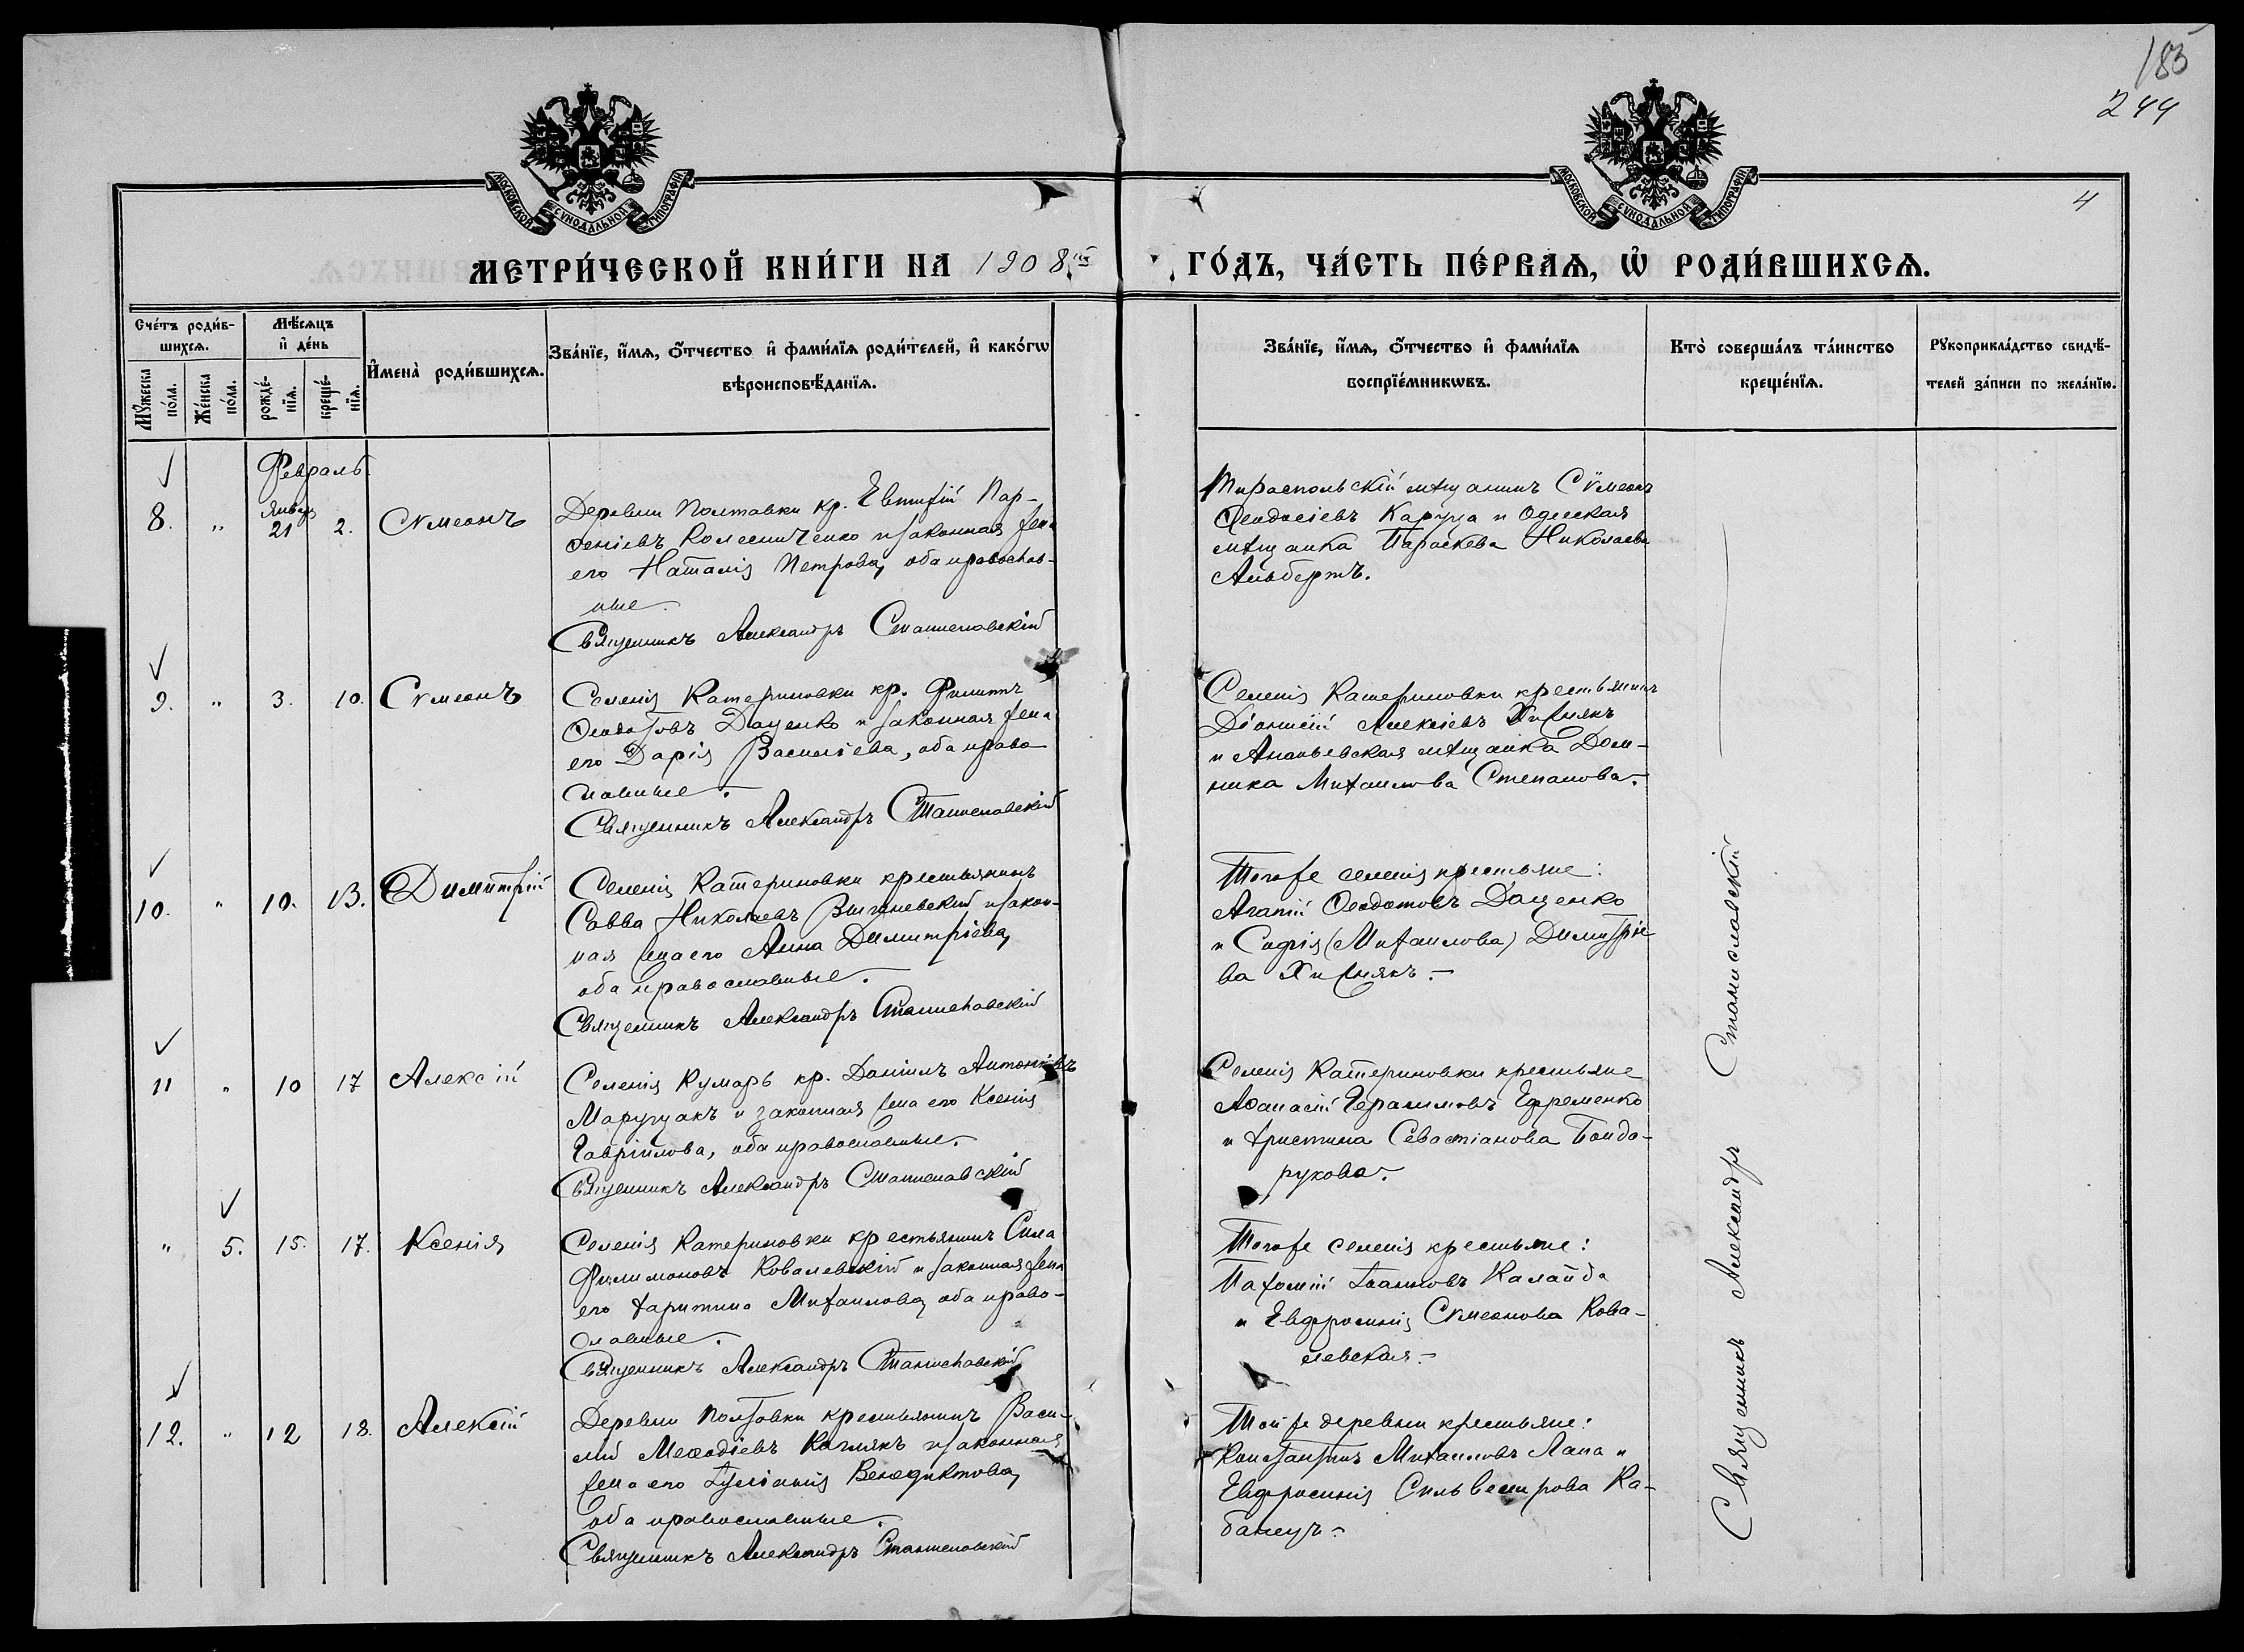 185
244
4
МОСКОВСКОЙ СѴНОДАЛЬНОЙ ТИПОГРАФІИ
МОСКОВСКОЙ СѴНОДАЛЬНОЙ ТИПОГРАФІИ
МЕТРИ́ЧЕСКОЙ КНИ́ГИ НА 1908й ГО́ДЪ, ЧА́СТЬ ПЕ́РВАѦ, Ѡ҆ РОДИ́ВШИХСѦ.
Сче́тъ роди́в-
шихсѧ.
Мꙋ́жеска по́ла.
Же́нска по́ла.
Мѣ́сѧцъ
и҆ де́нь
рожде́-
нїѧ.
креще́-
нїѧ.
И҆мена̀ роди́вшихсѧ.
Зва́нїе, и҆́мѧ, ѻ҆́тчество и҆ фами́лїѧ роди́телей, и҆ како́гѡ
вѣроисповѣ́данїѧ.
Зва́нїе, и҆́мѧ, ѻ҆́тчество и҆ фами́лїѧ
воспрїе́мникѡвъ.
Кто̀ соверша́лъ та́инство
креще́нїѧ.
Рꙋкоприкла́дство свидѣ́-
телей за́писи по жела́нїю.
Февраль
8. " Январ 21 2. Сѵмеонъ
Деревни Полтавки кр. Евтихій Пар-
ѳеніевъ Колесниченко и законная жена
его Наталія Петрова, оба православ-
ные.
Священникъ Александръ Станиславскій
Тираспольскій мѣщанинъ Сѵмеонъ
Ѳеодосіевъ и Одесская
мѣщанка Параскева Николаева
Альбертъ.
9. " 3. 10. Сѵмеонъ
Селенія Катериновки кр. Филиппъ
Ѳеодотовъ Даценко и законная жена
его Дарія Васильева, оба право
славные.
Священникъ Александръ Станиславскій
Селенія Катериновки крестьянинъ
Діонисій Алексіевъ Хижнякъ
и Ананьевская мѣщанка Дом-
ника Михаилова Степанова.
10. " 10. 13. Димитрій
Селенія Катериновки крестьянинъ
Савва Николаевъ Выгоневскій и закон-
ная жена его Анна Димитріева,
оба православные.
Священникъ Александръ Станиславскій
Тогоже селенія крестьяне:
Агапій Ѳеодотовъ Даценко
и Софія (Михаилова) Димитріе
ва Хижнякъ.
11 " 10 17 Алексій
Селенія Кумарь кр. Даніилъ Антоніевъ
Марущакъ и законная жена его Ксенія
Гавріилова, оба православные.
Священникъ Александръ Станиславскій
Селенія Катериновки крестьяне
Аѳанасій Герасимовъ Ефременко
и Христина Севастіанова Бондо-
рукова.
" 5. 15. 17. Ксенія
Селенія Катериновки крестьянинъ Сила
Филимоновъ Ковалевскій и законная жена
его Харитина Михаилова, оба право-
славные.
Священникъ Александръ Станиславскій
Тогоже селенія крестьяне:
Пахомій Іоанновъ Калайда
и Евфросинія Сѵмеонова Кова-
левская.
12. " 12 18. Алексій
Деревни Полтавки крестьянинъ Васи-
лій Меѳодіевъ и законная
жена его Іуліанія Венедиктова,
оба православные.
Священникъ Александръ Станиславскій
Той же деревни крестьяне:
Константинъ Михаиловъ Лапа и
Евфросинія Сильвестрова Ка-
банецъ.
Священникъ Александръ Станиславскій